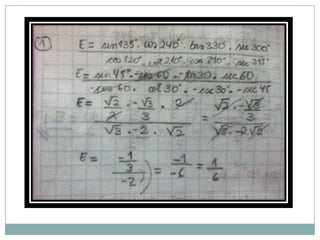 1
E = sin 135° · cos 240° · tan 330° · sec 300°
cos 120° · cot 210° · cos 210° · sec 315°
E = sin 45° · -cos 60 · -tan 30 · sec 60
-cos 60 · cot 30° · -cos 30° · -sec 45
E = √2 · -√3 · 2 = √2 · -√3
2 3 3
√3 · -2 · √2 √3 · -2 √2
E = -1 = -1 = 1
3 -6 6
-2